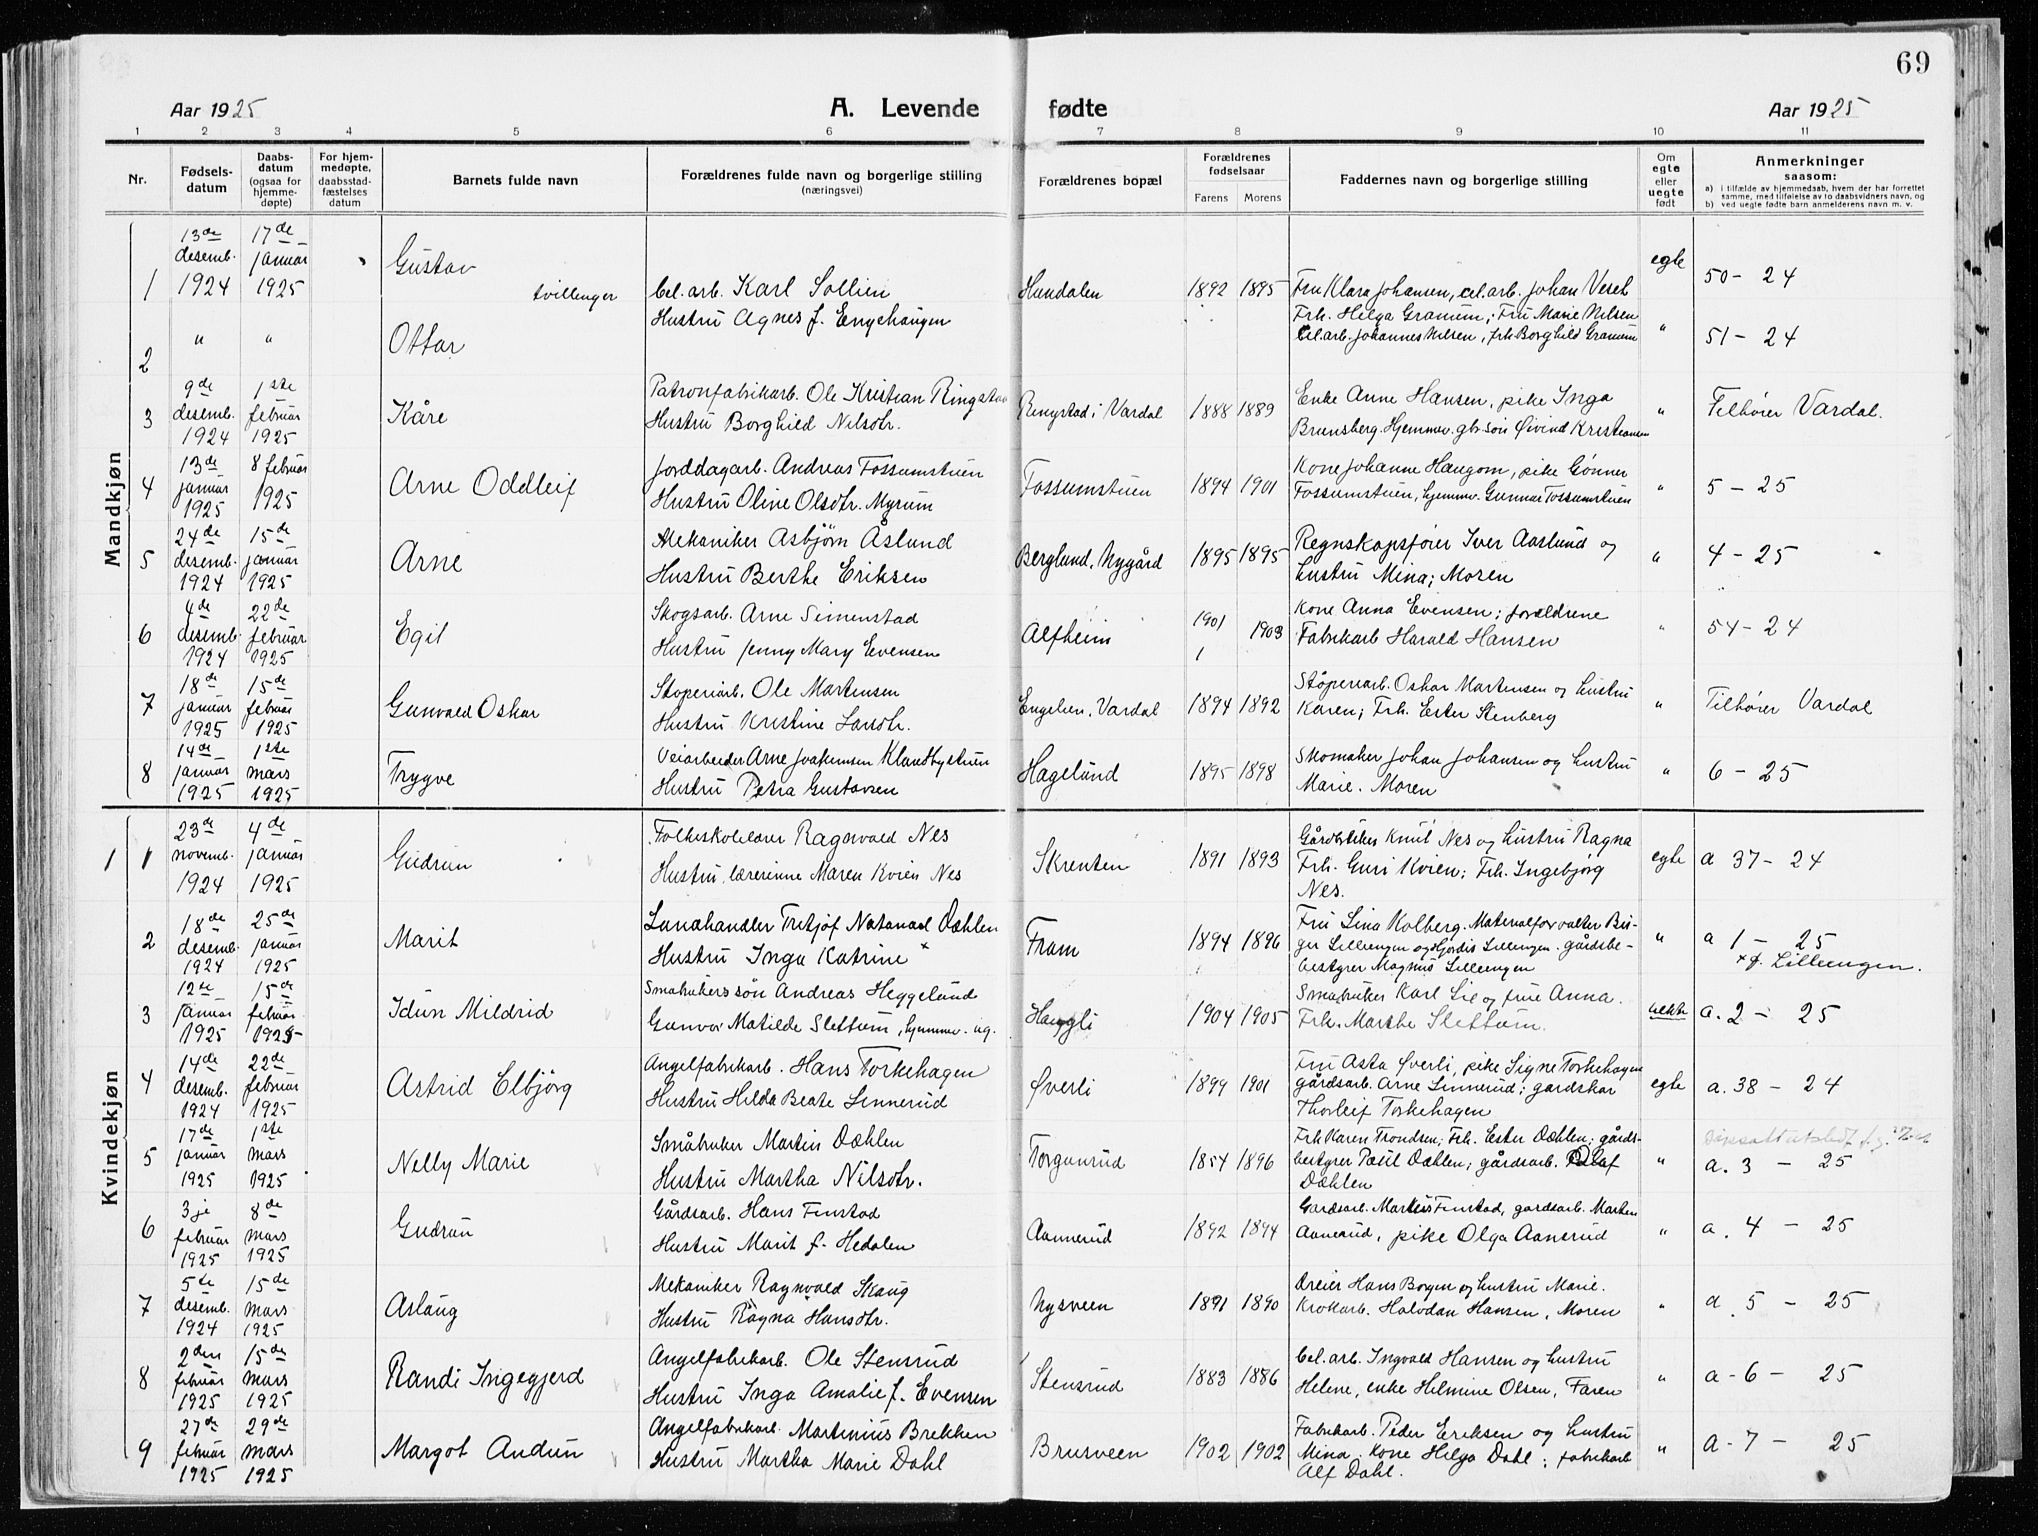 69
Aar 1925
A. Levende fødte
Aar 1925
1 2 3 4 5 6 7 8 9 10 11
Nr. | Fødselsdatum | Daabsdatum (ogsaa for hjemmedøpte) | For hjemmedøpte, daabsstadfæstelses datum | Barnets fulde navn | Forældrenes fulde navn og borgerlige stilling (næringsvei) | Forældrenes bopæl | Forældrenes fødselsaar Farens Morens | Faddernes navn og borgerlige stilling | Om egte eller uegte født | Anmerkninger saasom: a) i tilfælde av hjemmedaab, hvem der har forrettet samme, med tilføielse av to daabsvidners navn, og b) ved uegte fødte barn anmelderens navn m. v.
Mandkjøn
1 | 13de desemb. 1924 | 17de januar 1925 | Gustav tvillinger | Cel.arb. Karl Sollien Hustru Agnes f. Engehaugen | Hundalen | 1892 | 1895 | Fru Klara Johansen, cel.arb. Johan Vesel Frk. Helga Granum; Fru Marie Nilsen Cel.arb. Johannes Nilsen, frk Borghild Granum | egte | 50 - 24
2 | " | " | Ottar | " | 51 - 24
3 | 9de desemb. 1924 | 1ste februar 1925 | Kåre | Patronfabrikarb. Ole Kristian Ringstad Hustru Borghild Nilsdtr. | Ringstad i Vardal | 1888 | 1889 | Enke Anne Hansen, pike Inga Brunsberg. Hjemmev. gbr.søn Øivind Kristiansen | " | Tilhører Vardal.
4 | 13de januar 1925 | 8 februar 1925 | Arne Oddleif | Jorddagarb. Andreas Fossumstuen Hustru Oline Olsdtr. Myrum | Fossumstuen | 1894 | 1901 | Kone Johanne Haugom, pike Gønner Fossumstuen, hjemmv. Gunnar Fossumstuen | " | 5 - 25
5 | 24de desemb. 1924 | 15de januar 1925 | Arne | Mekaniker Asbjørn Åslund Hustru Berthe Eriksen | Berglund, Nygård | 1895 | 1895 | Regnskapsfører Iver Aaslund og hustru Mina; Moren | " | 4 - 25
6 | 4de desemb. 1924 | 22de februar 1925 | Egil | Skogsarb. Arne Simenstad Hustru Jenny Mary Evensen | Alfheim | 1901 | 1903 | Kone Anna Evensen; forældrene Fabrikarb Harald Hansen | " | 54 - 24
7 | 18de januar 1925 | 15de februar 1925 | Gunvald Oskar | Støperiarb. Ole Martinsen Hustru Kristine Larsdtr. | Engelien, Vardal | 1894 | 1892 | Støperiarb. Oskar Martinsen og hustru Karen; Frk. Ester Stenberg | " | Tilhører Vardal
8 | 14de januar 1925 | 1ste mars 1925 | Trygve | Veiarbeider Arne Joakimsen Klundbystuen Hustru Petra Gustavsen | Hagelund | 1895 | 1898 | Skomaker Johan Johansen og hustru Marie. Moren | " | 6 - 25
Kvindekjøn
1 1 | 23de novemb. 1924 | 4de januar 1925 | Gudrun | Folkeskolelærer Ragnvald Nes Hustru lærerinne Maren Kvien Nes | Skrenten | 1891 | 1893 | Gårdbruker Knut Nes og hustru Ragna Frk. Guri Kvien; Frk. Ingebjørg Nes. | egte | a 37 - 24
2 | 18de desemb. 1924 | 25de januar 1925 | Marit | Landhandler Fritjof Natanael Dæhlen Hustru Inga Katrine x | Fram | 1894 | 1896 | Fru Lina Kolberg. Materialforvalter Birger Lillengen og Hjørdis Lillengen. gårdsbestyrer Magnus Lillengen | " | a 1 - 25 x f. Lilleengen.
3 | 12te januar 1925 | 15de februar 1925 | Idun Mildrid | Småbrukerssøn Andreas Heggelund Gunvor Matilde Slettum, hjemmev. ug. | Haugli | 1904 | 1905 | Småbruker Karl Lie og frue Anna. Frk. Marthe Slettum. | uekte | a. 2 - 25
4 | 14de desemb. 1924 | 22de februar 1925 | Astrid Elbjørg | Angelfabrikarb. Hans Torkehagen Hustru Hilda Beate Linnerud | Øverli | 1899 | 1901 | Fru Asta Øverli, pike Signe Torkehagen gårdsarb. Arne Linnerud; gardskar Thorleif Torkehagen | egte | a. 38 - 24
5 | 17de januar 1925 | 1ste mars 1925 | Nelly Marie | Småbruker Martin Dæhlen Hustru Martha Nilsdtr. | Torgunrud | 1854 | 1896 | Frk Karen Trondsen; Frk. Ester Dæhlen; gårdsbestyrer Paul Dæhlen; gårdsarb. Olaf Dæhlen | " | a. 3 - 25
6 | 3je februar 1925 | 8de mars 1925 | Gudrun | Gårdsarb. Hans Finstad Hustru Marit f. Hedalen | Aannerud | 1892 | 1894 | Gardsarb. Markus Finstad, gardsarb. Marken Aannerud, pike Olga Aanerud | " | a. 4 - 25
7 | 5te desemb. 1924 | 15de mars 1925 | Aslaug | Mekaniker Ragnvald Skaug Hustru Ragna Hansdtr. | Nysveen | 1891 | 1890 | Dreier Hans Borgen og hustru Marie. Krokarb. Halvdan Hansen, Moren | " | a. 5 - 25
8 | 2den februar 1925 | 15de mars 1925 | Randi Ingegjerd | Angelfabrikarb. Ole Stensrud Hustru Inga Amalie f. Evensen | Stensrud | 1883 | 1886 | Cel.arb. Ingvald Hansen og hustru Helene, enke Helmine Olsen, Faren | " | a - 6 - 25
9 | 27de februar 1925 | 29de mars 1925 | Margot Andun | Angelfabrikarb. Martinius Brekken Hustru Martha Marie Dahl | Brusveen | 1902 | 1902 | Fabrikarb. Peder Eriksen og hustru Mina; Kone Helga Dahl; fabrikarb Alf Dahl. | " | a - 7 - 25